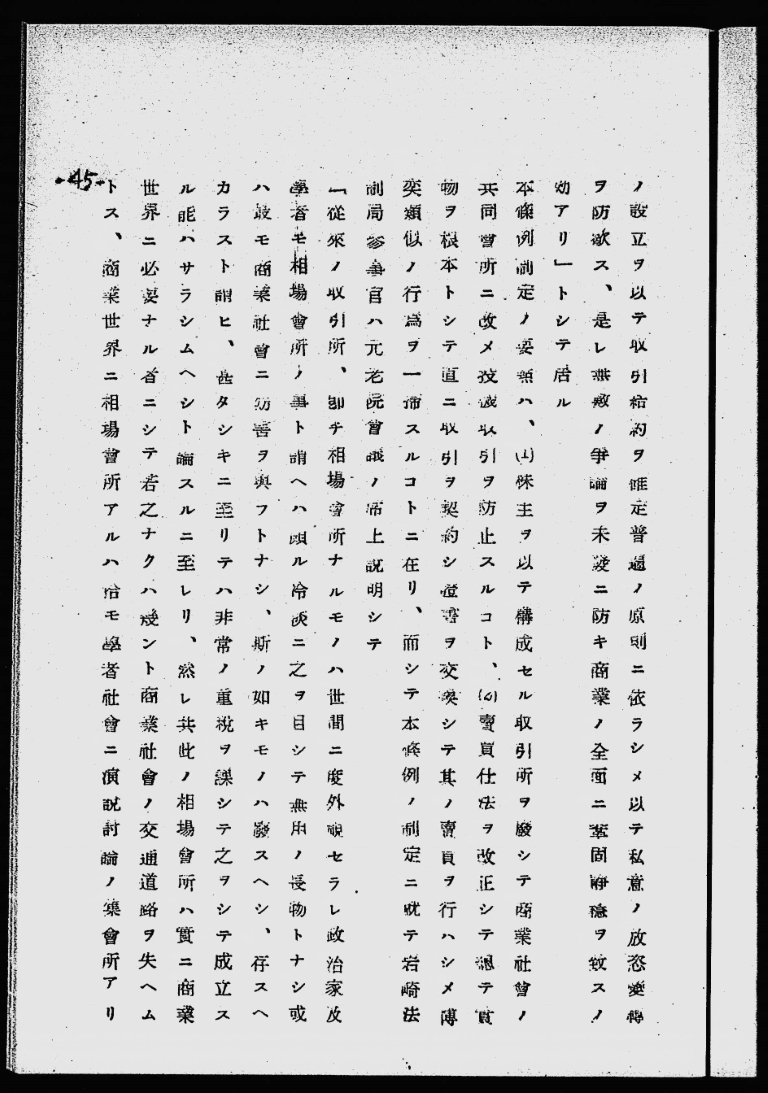 ノ設立ヲ以テ取引結約ヲ確定普通ノ原則ニ依ラシメ以テ私意ノ放恣變轉
ヲ防歇ス、是レ無數ノ爭論ヲ未發ニ防キ商業ノ全面ニ鞏固靜穩ヲ致スノ
効アリ」トシテ居ル
本條例制定ノ要領ハ、(1)株主ヲ以テ構成セル取引所ヲ廢シテ商業社會ノ
共同會所ニ改メ投機取引ヲ防止スルコト、(2)賣買仕法ヲ改正シテ總テ實
物ヲ根本トシテ直ニ取引ヲ契約シ證書ヲ交換シテ其ノ賣買ヲ行ハシメ博
奕類似ノ行爲ヲ一掃スルコトニ在リ、而シテ本條例ノ制定ニ就テ岩崎法
制局參事官ハ元老院會議ノ席上說明シテ
「從來ノ取引所、卽チ相場會所ナルモノハ世間ニ度外視セラレ政治家及
學者モ相場會所ノ事ト謂ヘハ頗ル冷淡ニ之ヲ目シテ無用ノ長物トナシ或
ハ最モ商業社會ニ妨害ヲ與フトナシ、斯ノ如キモノハ廢スヘシ、存スヘ
カラスト謂ヒ、甚タシキニ至リテハ非常ノ重稅ヲ課シテ之ヲシテ成立ス
ル能ハサラシムヘシト論スルニ至レリ、然レ共此ノ相場會所ハ實ニ商業
世界ニ必要ナル者ニシテ若之ナクハ幾ント商業社會ノ交通道路ヲ失ヘム
トス、商業世界ニ相場會所アルハ恰モ學者社會ニ演說討論ノ集會所アリ
-45-